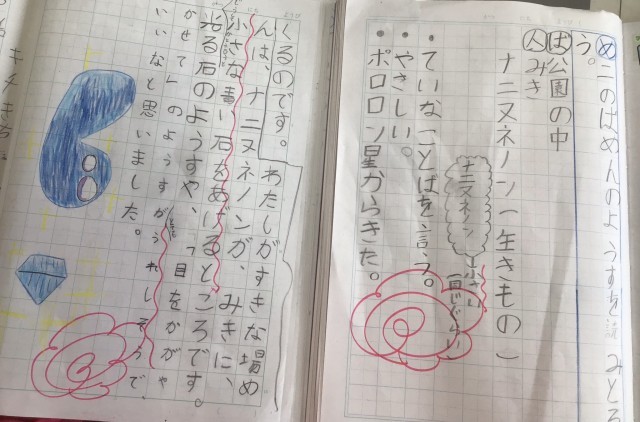 め このばめんのようすを読みとろ
う。
ば 公園の中
人 みき
ナニヌネノン(生きもの)
ナニヌネノン
小さい
・ていなことばを言う。
・やさしい。
・ポロロン星からきた。
くるのです。
わたしがすきな場め
んは、ナニヌネノンが、みきに、
小さな青い石をあげるところです。
光る石のようすや、「目をかがや
かせて」のようすがうれしそうで、
いいなと思いました。